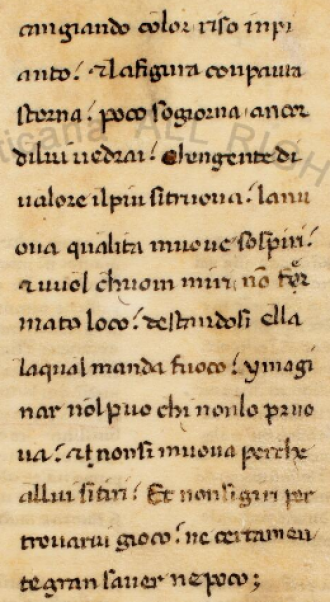 cangiando color riso inpi
anto. et la figura con paura
storna. poco sogiorna. ancor
dilui uedrai. chengente di
ualore ilpiu sitruoua. lanu
oua qualita muoue sospiri.
et uuol chuom miri. nō for
mato loco. destandosi ella
laqual manda fuoco. ymagi
nar nol puo chi nonlo pruo
ua. et nonsi muoua perche
allui sitiri. Et nonsi giri per
trouarui gioco. ne certamen
te gran sauer ne poco;